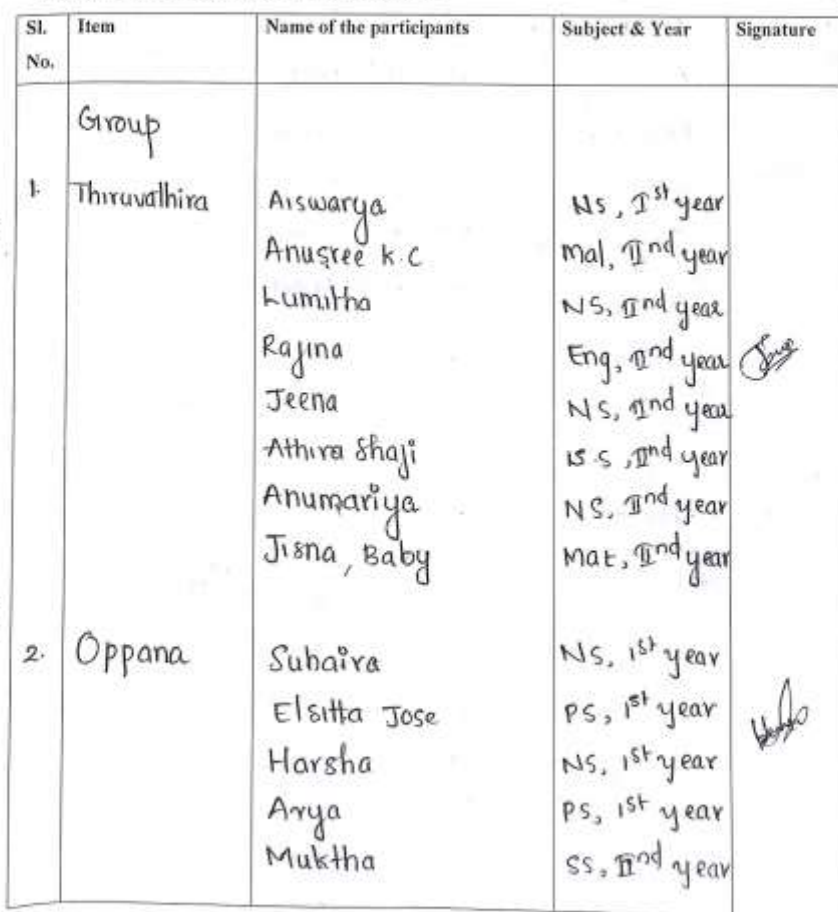 Sl. No. Item Name of the participants Subject & Year Signature
Group
1. Thiruvathira Aiswarya NS, Ist year
Anusree K.C Mal, IInd year
Lumitha NS, IInd year
Rajina Eng, IInd year
Jeena NS, IInd year
Athira Shaji S.S, IInd year
Anumariya NS, IInd year
Jisna, Baby Mat, IInd year
2. Oppana Suhaira NS, 1st year
Elsitta Jose PS, 1st year
Harsha NS, 1st year
Arya PS, 1st year
Muktha SS, IInd year